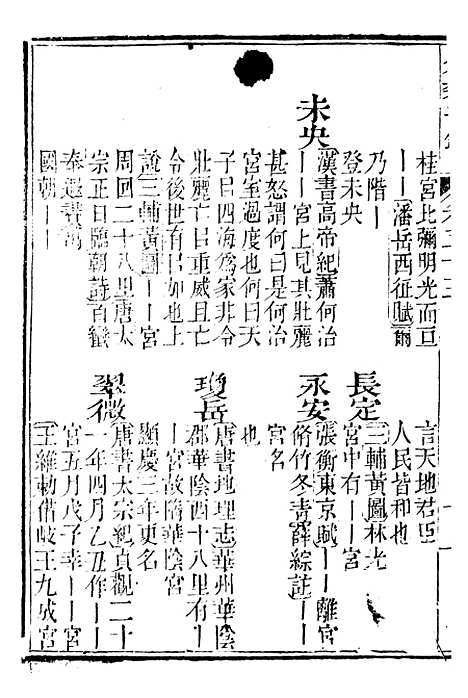 桂宮比彌明光而亘
——潘岳西征賦爾
乃階—
登未央
未央
漢書高帝紀蕭何治
——宮上見其壯麗
甚怒謂何曰是何治
宮室過度也何曰天
子曰四海為家非令
壯麗亡曰重威且亡
令後世有曰加也上
說三輔黃圖——宮
周回二十八里唐太
宗正日臨朝詩百蠻
奉遐贐萬
國朝——
言天地君臣
人民皆和也
長定
三輔黃圖林光
宮中有——宮
永安
張衡東京賦——離宮
脩竹冬青薛綜註——
宮名
也
瓊岳
唐書地理志華州華陰
郡華陰西十八里有—
—宮故隋華陰宮
顯慶三年更名
翠微
唐書太宗紀貞觀二十
一年四月乙丑作——
宮五月戊子幸——宮
王維勅借岐王九成宮